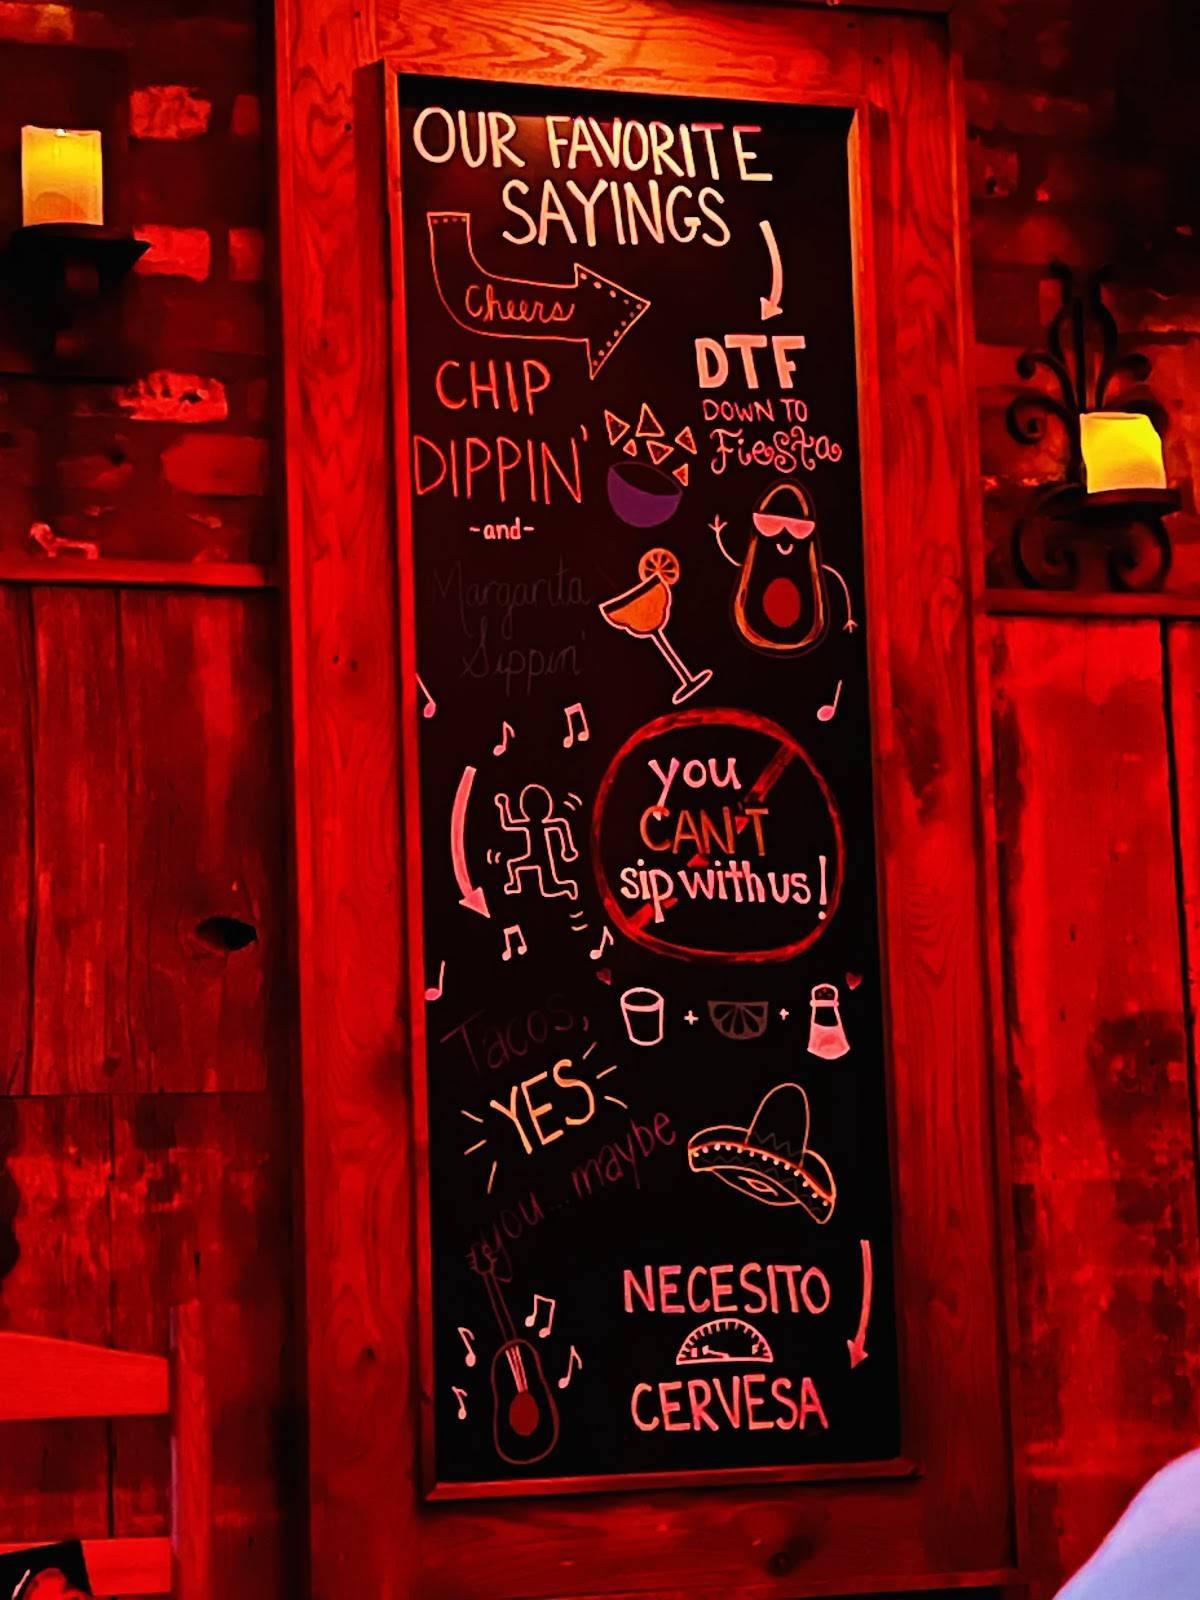 OUR FAVORITE
SAYINGS
Cheers
CHIP
DIPPIN'
~and~
Margarita
Sippin'
DTF
DOWN TO
Fiesta
you
CAN'T
sip with us!
+ +
Tacos,
YES
you...maybe
NECESITO
CERVESA